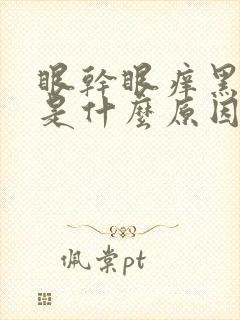 眼幹眼痒黑
是什麼原因
佩棠pt